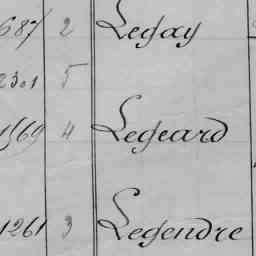 687 2 Legay
2301 5
1569 4 Legeard
1261 3 Legendre